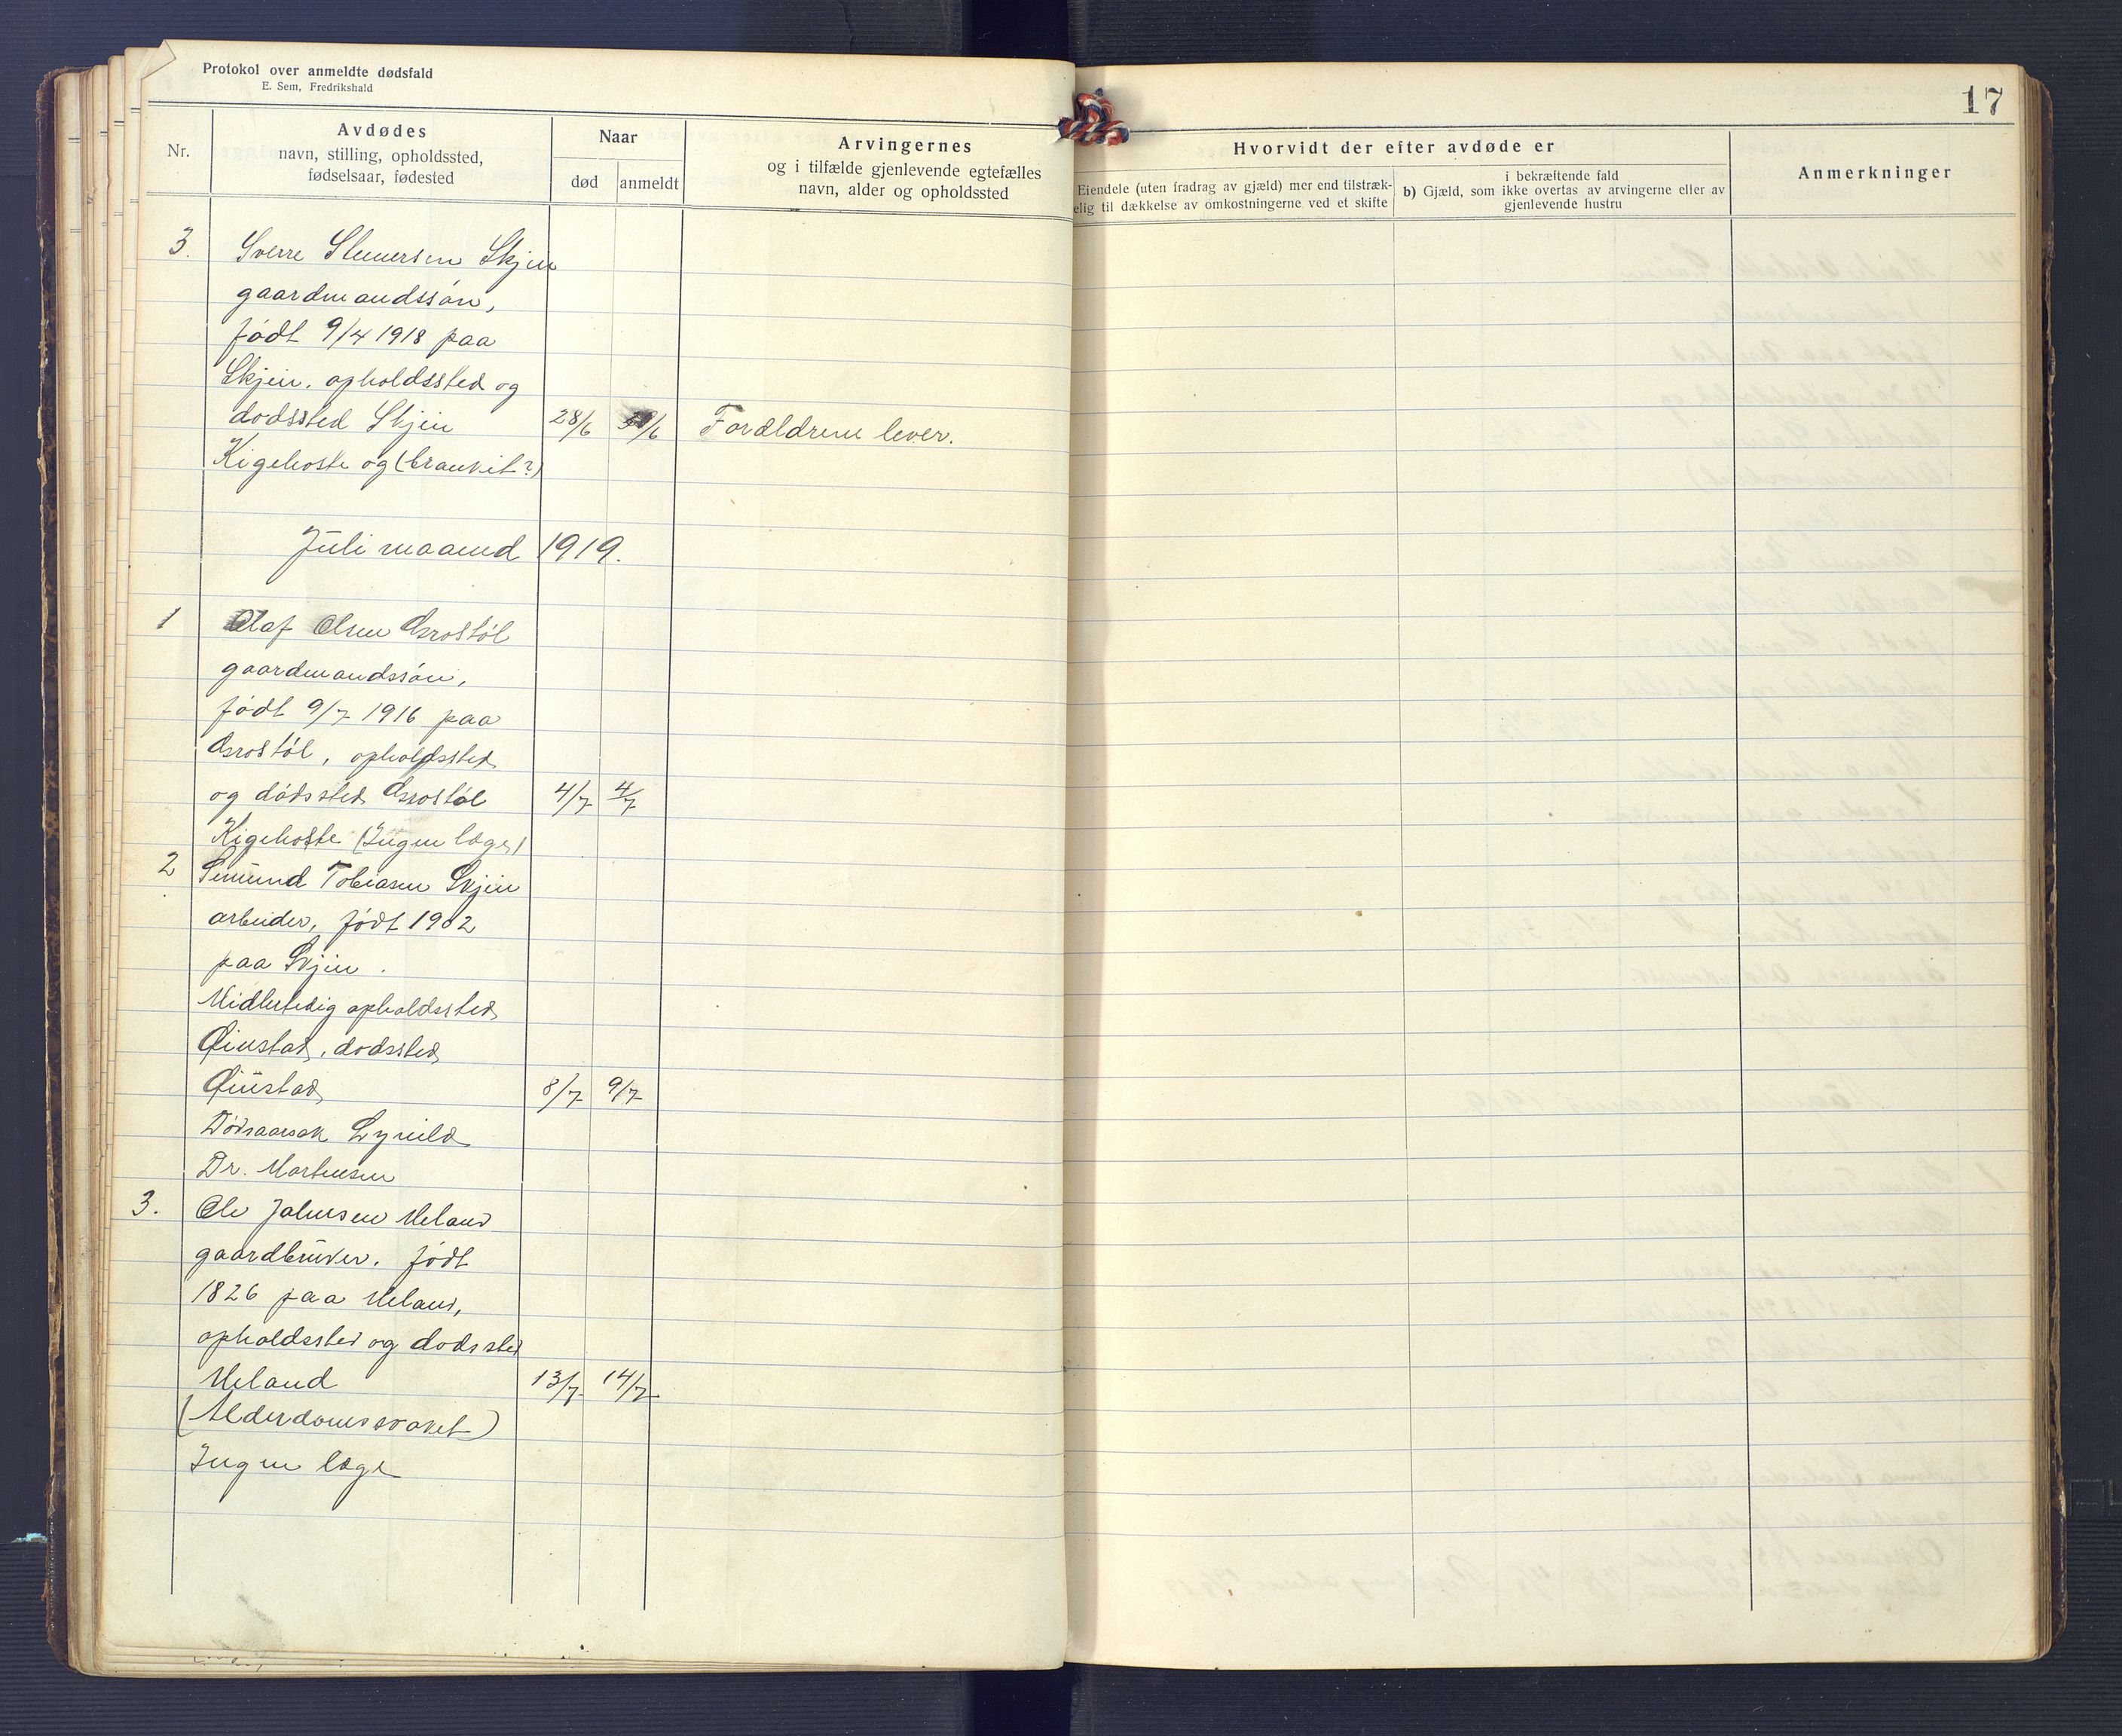 Protokol over anmeldte dødsfald
E. Sem, Fredrikshald
17
Nr.
Avdødes
navn, stilling, opholdssted,
fødselsaar, fødested
Naar
død
anmeldt
Arvingernes
og i tilfælde gjenlevende egtefælles
navn, alder og opholdssted
Hvorvidt der efter avdøde er
Eiendele (uten fradrag av gjæld) mer end tilstræk-
elig til dækkelse av omkostningerne ved et skifte
i bekræftende fald
b) Gjæld, som ikke overtas av arvingerne eller av
gjenlevende hustru
Anmerkninger
3. Sverre Skjein
gaardmandssøn,
født 9/4 1918 paa
Skjein. opholdssted og
dodssted Skjein 28/6 /6 Forældrene lever.
Kigehoste og (brankit?)
Juli maaned 1919.
1 Olaf Olsen
gaardmandssøn,
født 9/7 1916 paa
opholdssted
og dødssted 4/7 4/7
Kigehoste (Ingen læge)
2 Tobiasen Skjein
arbeider, født 1902
paa Skjein.
Midlertidig opholdssted
Øiustad, dodssted
Øiustad 8/7 9/7
Dødsaarsak Lynild
Dr. Mortensen
3. Ole Jakobsen Meland
gaardbruker. født
1826 paa Meland,
opholdssted og dodssted
Meland 13/7 14/7
(Alderdomssvaket)
Ingen læge